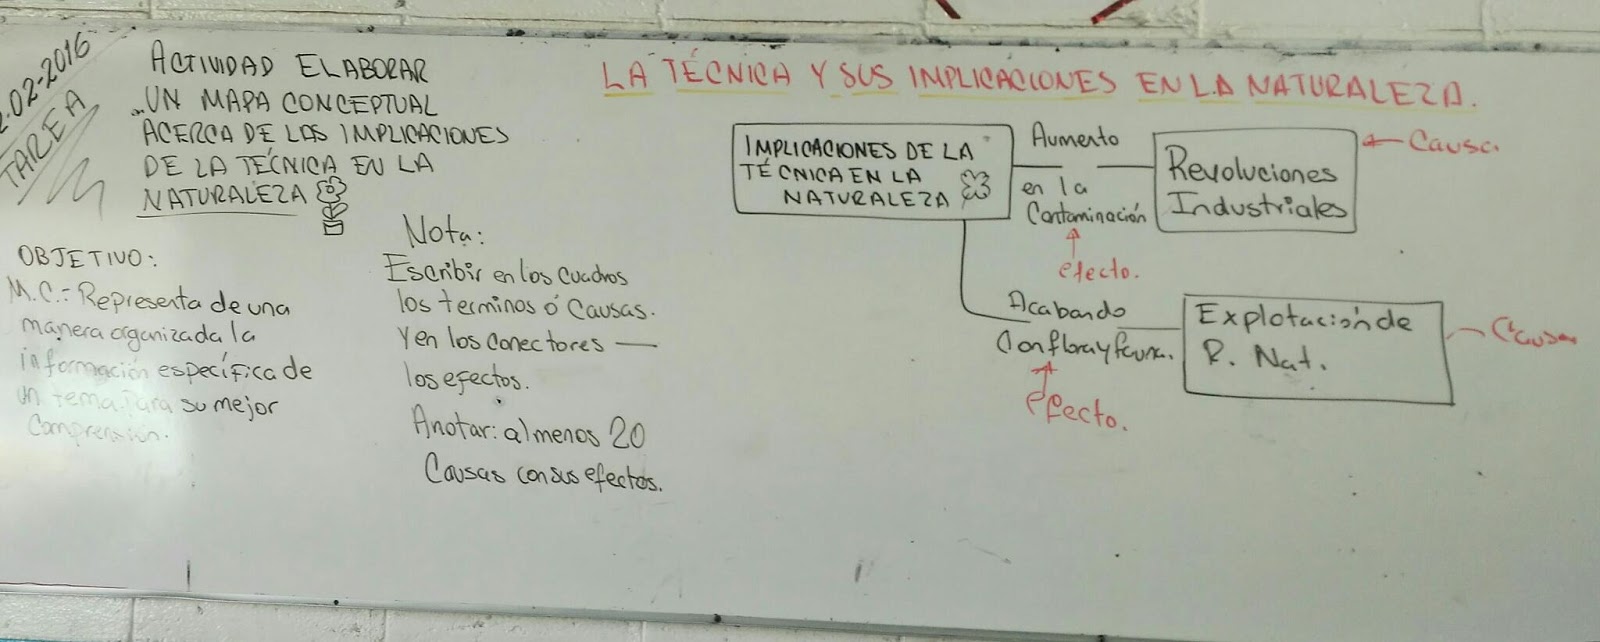 .02-2016
TAREA
ACTIVIDAD ELABORAR
UN MAPA CONCEPTUAL
ACERCA DE LAS IMPLICACIONES
DE LA TÉCNICA EN LA
NATURALEZA
OBJETIVO:
M.C.- Representa de una
manera organizada la
información específica de
un tema para su mejor
Comprensión.
Nota:
Escribir en los cuadros
los terminos ó causas.
Y en los conectores —
los efectos.
Anotar: al menos 20
Causas con sus efectos.
LA TÉCNICA Y SUS IMPLICACIONES EN LA NATURALEZA.
IMPLICACIONES DE LA
TÉCNICA EN LA
NATURALEZA
Aumento
en la
Contaminación
efecto.
Revoluciones
Industriales
Causa.
Acabando
Con flora y fauna.
efecto.
Explotación de
R. Nat.
Causa